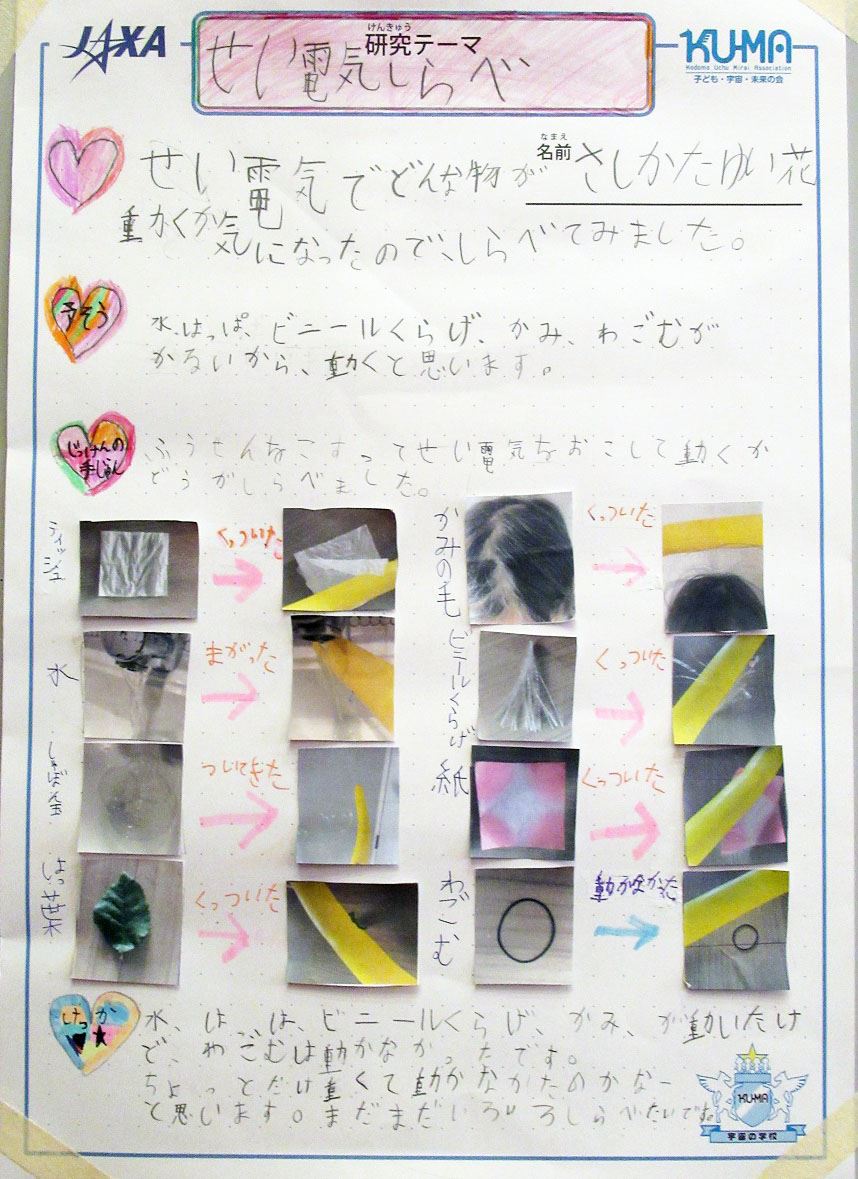 JAXA
けんきゅう
研究テーマ
せい電気しらべ
KU-MA
Kodomo Uchu Mirai Association
子ども・宇宙・未来の会
なまえ
名前
さしかたゆい花
せい電気でどんな物が
動くか気になったので、しらべてみました。
予そう
水、はっぱ、ビニールくらげ、かみ、わごむが
かるいから、動くと思います。
じっけんの
手じゅん
ふうせんをこすってせい電気をおこして動くか
どうかしらべました。
ティッシュ
くっついた
かみの毛
くっついた
水
まがった
ビニールくらげ
くっついた
しゃぼん玉
ついてきた
紙
くっついた
はっ葉
くっついた
わごむ
動かなかった
けっか
水、はっぱ、ビニールくらげ、かみ、が動いたけ
ど、わごむは動かなかったです。
ちょっとだけ重くて動かなかたのかなー
と思います。まだまだいろいろしらべたいです。
KU-MA
宇宙の学校